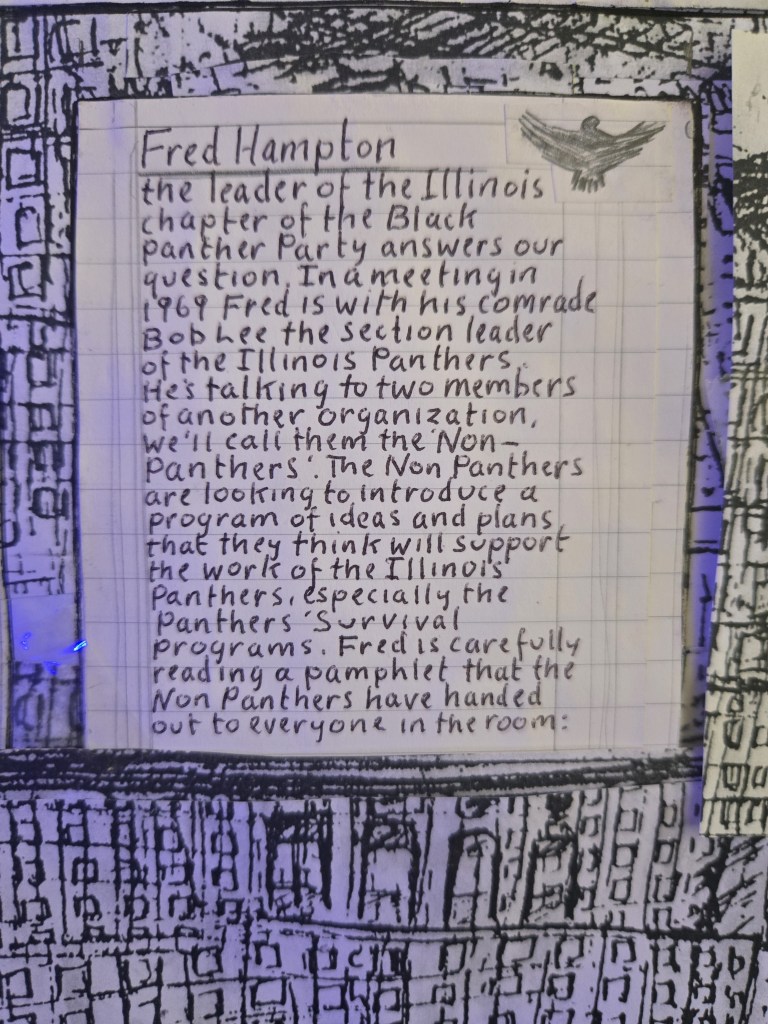 Fred Hampton
the leader of the Illinois
chapter of the Black
panther Party answers our
question. In a meeting in
1969 Fred is with his comrade
Bob Lee the section leader
of the Illinois Panthers.
He's talking to two members
of another organization,
we'll call them the 'Non-
Panthers'. The Non Panthers
are looking to introduce a
program of ideas and plans
that they think will support
the work of the Illinois
Panthers, especially the
Panthers 'Survival
programs. Fred is carefully
reading a pamphlet that the
Non Panthers have handed
out to everyone in the room: